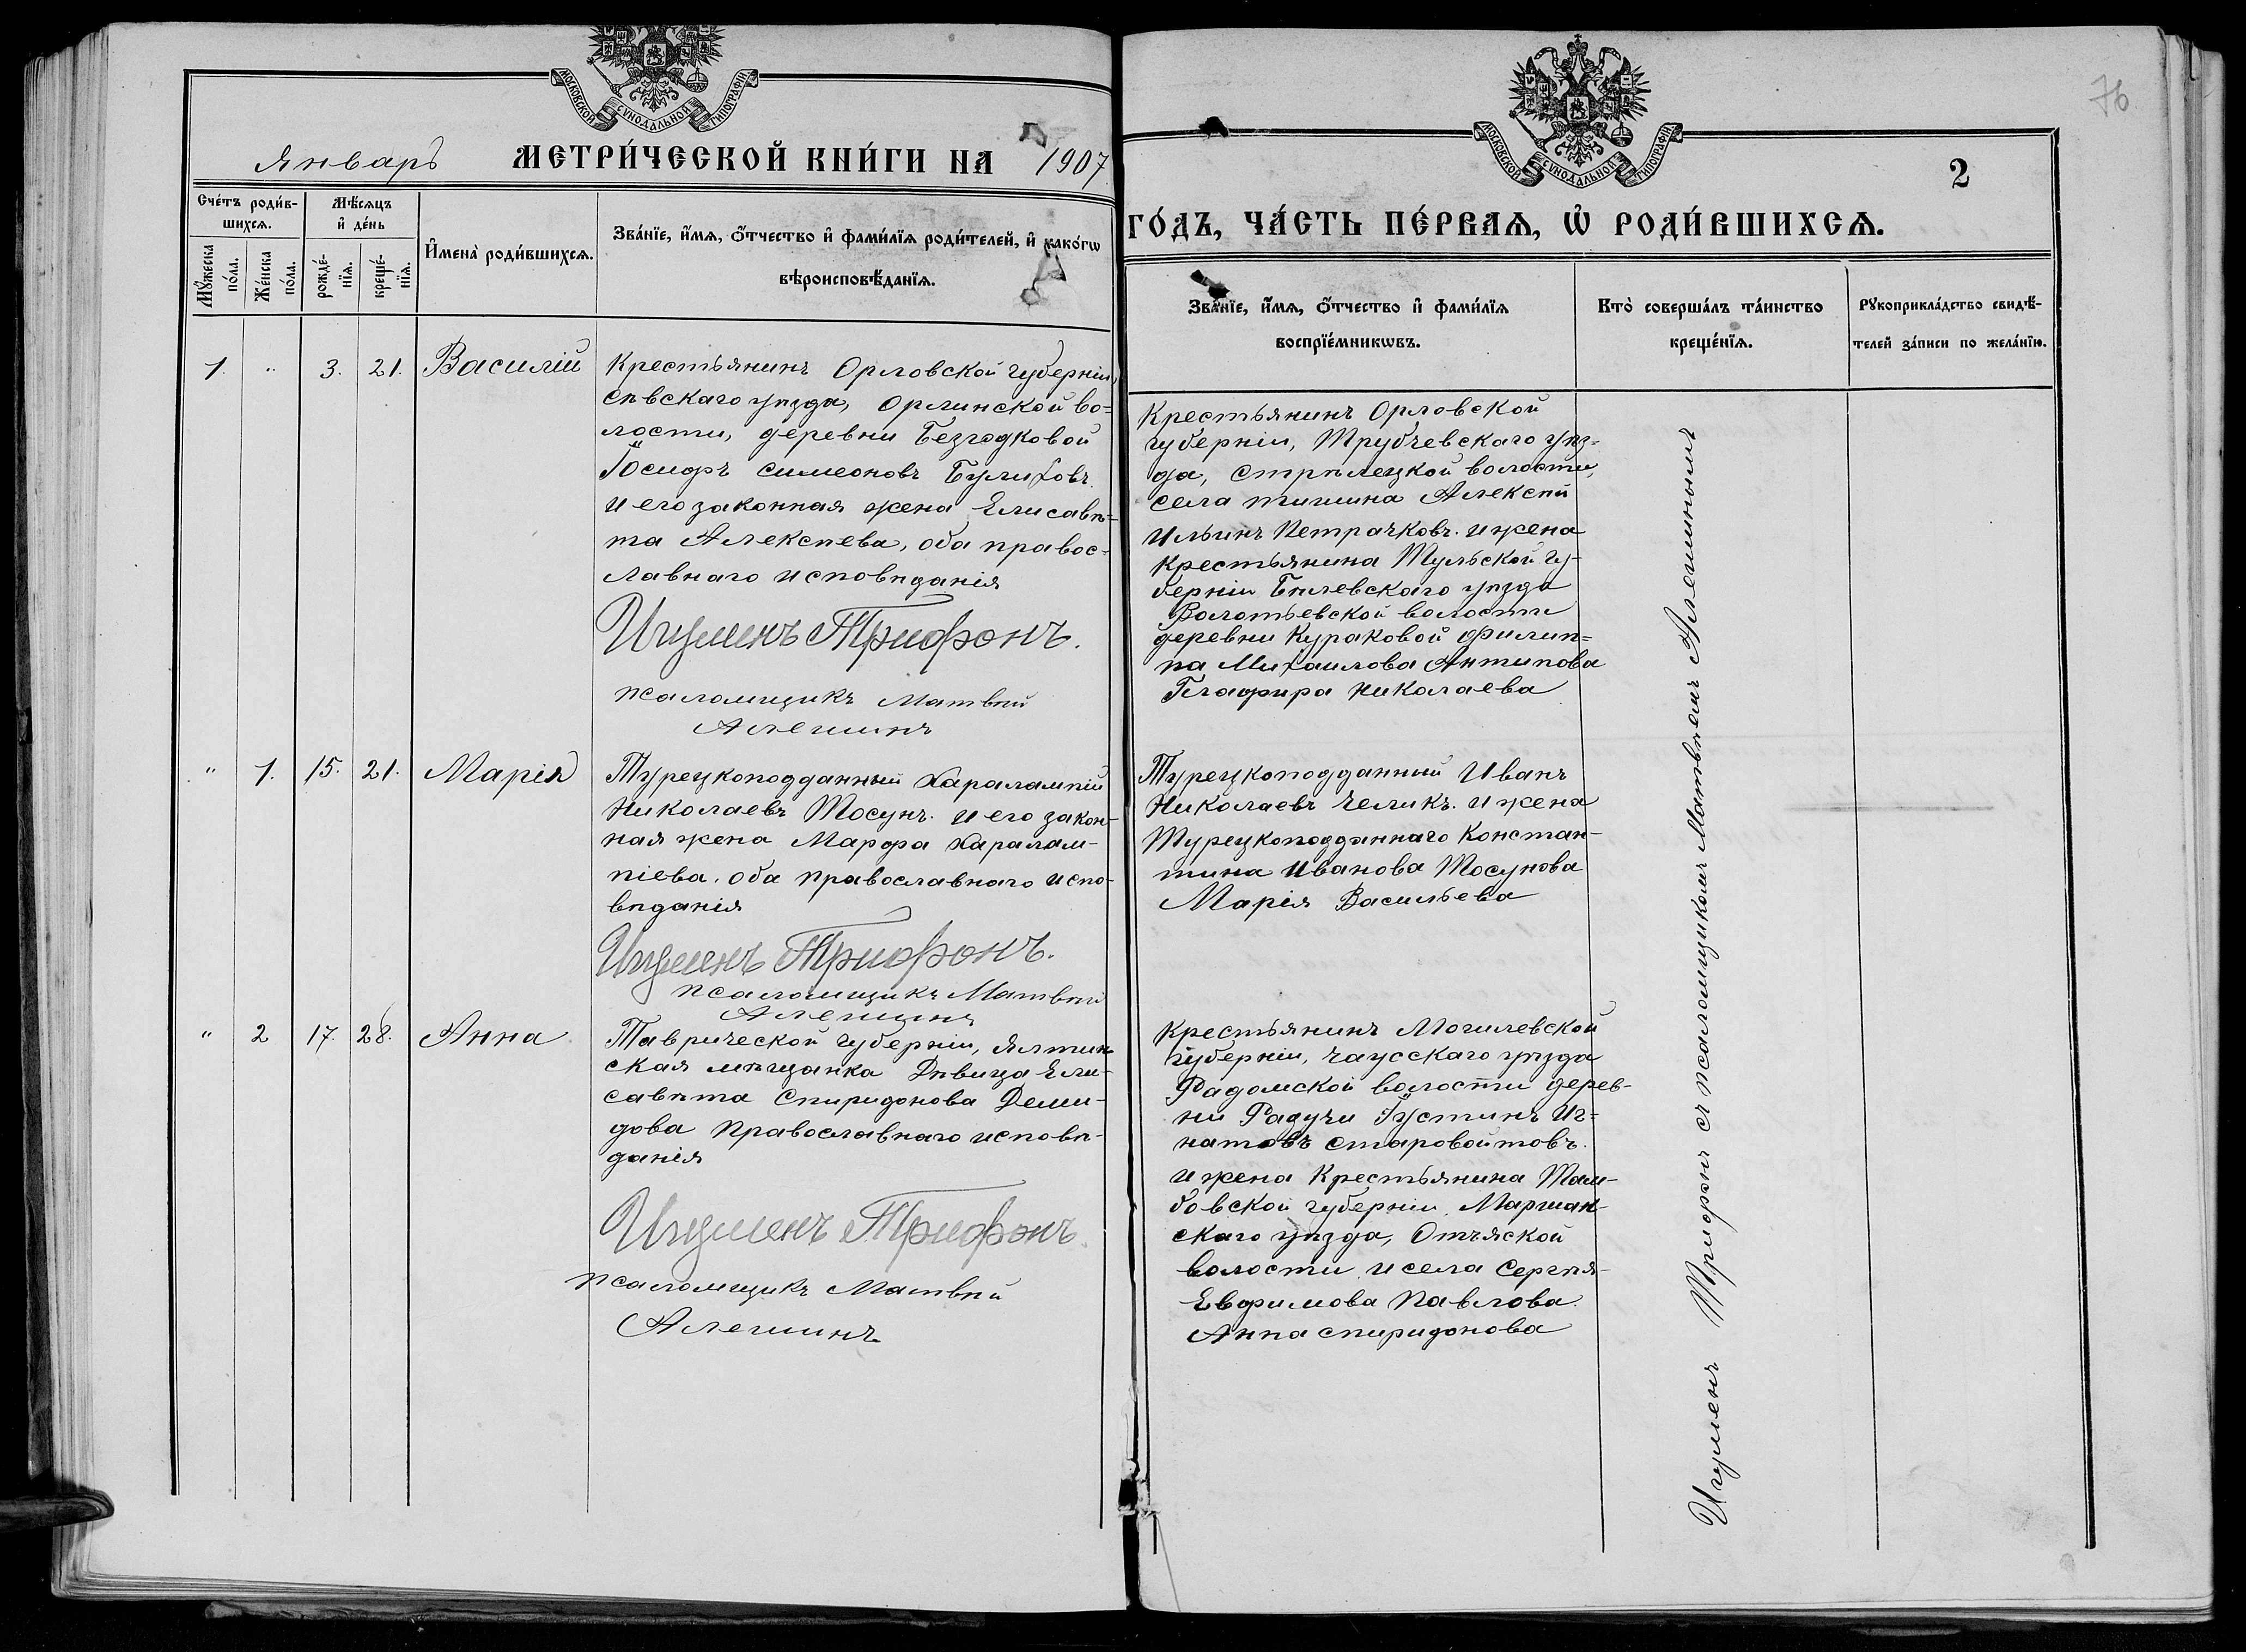 МОСКОВСКОЙ СѴНОДАЛЬНОЙ ТИПОГРАФІИ
Январь МЕТРИ́ЧЕСКОЙ КНИ́ГИ НА 1907
Сче́тъ роди́в-
шихся.
Мѣ́сяцъ
и҆ де́нь
Мꙋ́жеска
по́ла.
Же́нска
по́ла.
рожде́-
нїѧ.
креще́-
нїѧ.
И҆мена̀ роди́вшихсѧ.
Зва́нїе, и҆́мѧ, ѻ҆́тчество и҆ фами́лїѧ роди́телей, и҆ како́гѡ
вѣроисповѣ́данїѧ.
1. " 3. 21. Василій
Крестьянинъ Орловской губерніи,
Сѣвскаго уѣзда, Орлинской во=
лости, деревни Безгодковой
Іосифъ Симеоновъ Булиховъ
и его законная жена Елисавѣ=
та Алексѣева, оба правос=
лавнаго исповѣданія
Игуменъ Трифонъ.
Псаломщикъ Матвѣй
Алешинъ
" 1. 15. 21. Марія
Турецкоподданный Харалампій
Николаевъ Тосунъ. и его закон-
ная жена Марфа Харалам-
піева. оба православнаго испо-
вѣданія
Игуменъ Трифонъ.
Псаломщикъ Матвѣй
Алешинъ
" 2 17. 28. Анна
Таврической губерніи, Ялтин
ская мѣщанка Дѣвица Ели-
савѣта Спиридонова Деми-
дова Православнаго исповѣ-
данія
Игуменъ Трифонъ.
Псаломщикъ Матвѣй
Алешинъ
76
МОСКОВСКОЙ СѴНОДАЛЬНОЙ ТИПОГРАФІИ
2
ГО́ДЪ, ЧА́СТЬ ПЕ́РВАѦ, Ѡ҆ РОДИ́ВШИХСѦ.
Зва́нїе, и҆́мѧ, ѻ҆́тчество и҆ фами́лїѧ
воспрїе́мникѡвъ.
Кто̀ соверша́лъ та́инство
креще́нїѧ.
Рꙋкоприкла́дство свидѣ́-
телей за́писи по жела́нїю.
Крестьянинъ Орловской
губерніи, Трубчевскаго уѣз-
да, Стрѣлецкой волости,
села Тишина Алексѣй
Ильинъ Петрачковъ. и жена
Крестьянина Тульской гу-
берніи Бѣлевскаго уѣзда
Волотьевской волости
деревни Кураковой Филип=
па Михаилова Антипова
Глафира Николаева
Турецкоподданный Иванъ
Николаевъ Челикъ. и жена
Турецкоподданнаго Констан-
тина Иванова Тосунова
Марія Васильева
Крестьянинъ Могилевской
губерніи, Чаусскаго уѣзда
Радомской волости дерев-
ни Радучи Іустинъ Иг=
натовъ Старовойтовъ.
и жена Крестьянина Там-
бовской губерніи, Маршан-
скаго уѣзда, Отъяской
волости и села Сергѣя
Евфимова Павлова.
Анна Спиридонова
Игуменъ Трифонъ съ псаломщикомъ Матвѣемъ Алешинымъ